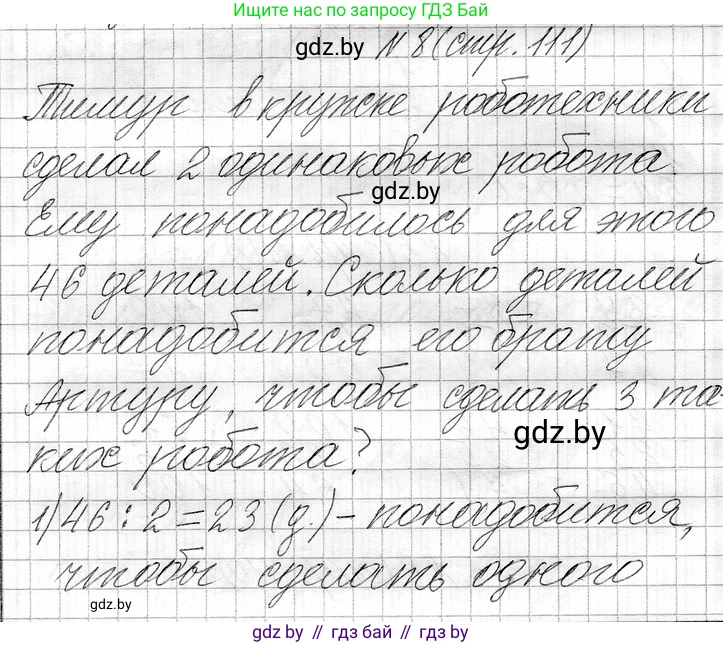 Ищите нас по запросу ГДЗ Бай
gdz.by № 8 (стр. 111)
Тимур в кружке робототехники
сделал 2 одинаковых робота.
gdz.by
Ему понадобилось для этого
46 деталей. Сколько деталей
понадобится его брату
Артуру, чтобы сделать 3 та-
gdz.by
ких робота?
1) 46 : 2 = 23 (д.) – понадобится,
чтобы сделать одного
gdz.by
gdz.by // гдз бай // gdz.by